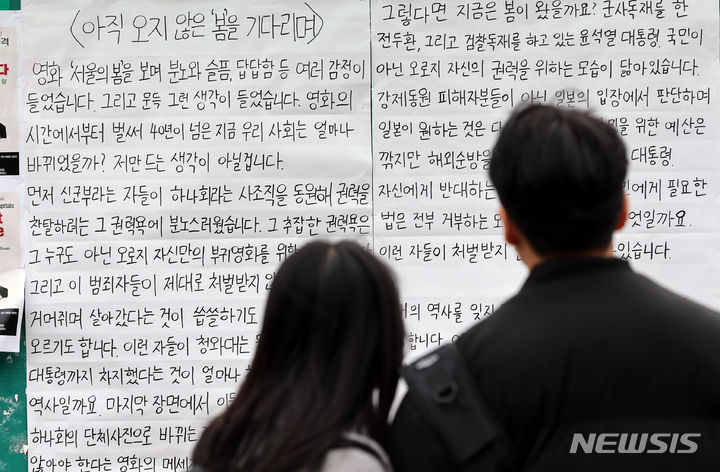 〈아직 오지 않은 '봄'을 기다리며〉
영화 '서울의 봄'을 보며 분노와 슬픔, 답답함 등 여러 감정이
들었습니다. 그리고 문득 그런 생각이 들었습니다. 영화의
시간에서부터 벌써 40년이 넘은 지금 우리 사회는 얼마나
바뀌었을까? 저만 드는 생각이 아닐겁니다.
먼저 신군부라는 자들이 하나회라는 사조직을 동원해 권력을
찬탈하려는 그 권력욕에 분노스러웠습니다. 그 추잡한 권력욕은
그 누구도 아닌 오로지 자신만의 부귀영화를 위한
그리고 이 범죄자들이 제대로 처벌받지 않
거머쥐며 살아갔다는 것이 씁쓸하기도
오르기도 합니다. 이런 자들이 청와대는
대통령까지 차지했다는 것이 얼마나
역사일까요. 마지막 장면에서 이들
하나회의 단체사진으로 바뀌는
않아야 한다는 영화의 메세지
그렇다면 지금은 봄이 왔을까요? 군사독재를 한
전두환, 그리고 검찰독재를 하고 있는 윤석열 대통령. 국민이
아닌 오로지 자신의 권력을 위하는 모습이 닮아있습니다.
강제동원 피해자분들이 아닌 일본의 입장에서 판단하며
일본이 원하는 것은 위한 예산은
깎지만 해외순방을 대통령.
자신에게 반대하는 에게 필요한
법은 전부 거부하는 엇일까요.
이런 자들이 처벌받지 있습니다.
의 역사를 잊지
합니다.
NEWSIS